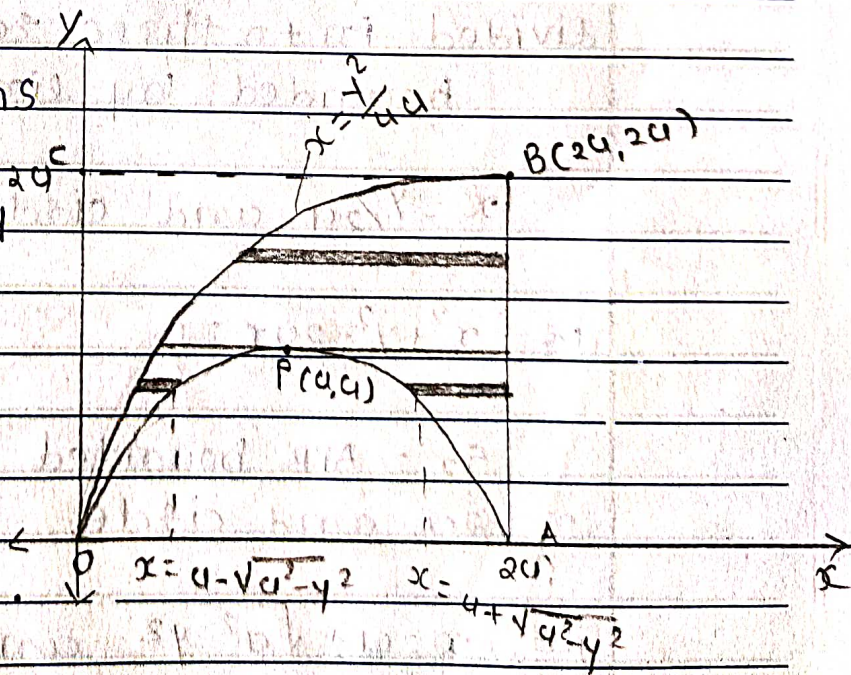 Y
x = y²/4a
2a C
B(2a, 2a)
P(a,a)
O
A
2a
x = a-√a²-y²
x = a+√a²-y²
x